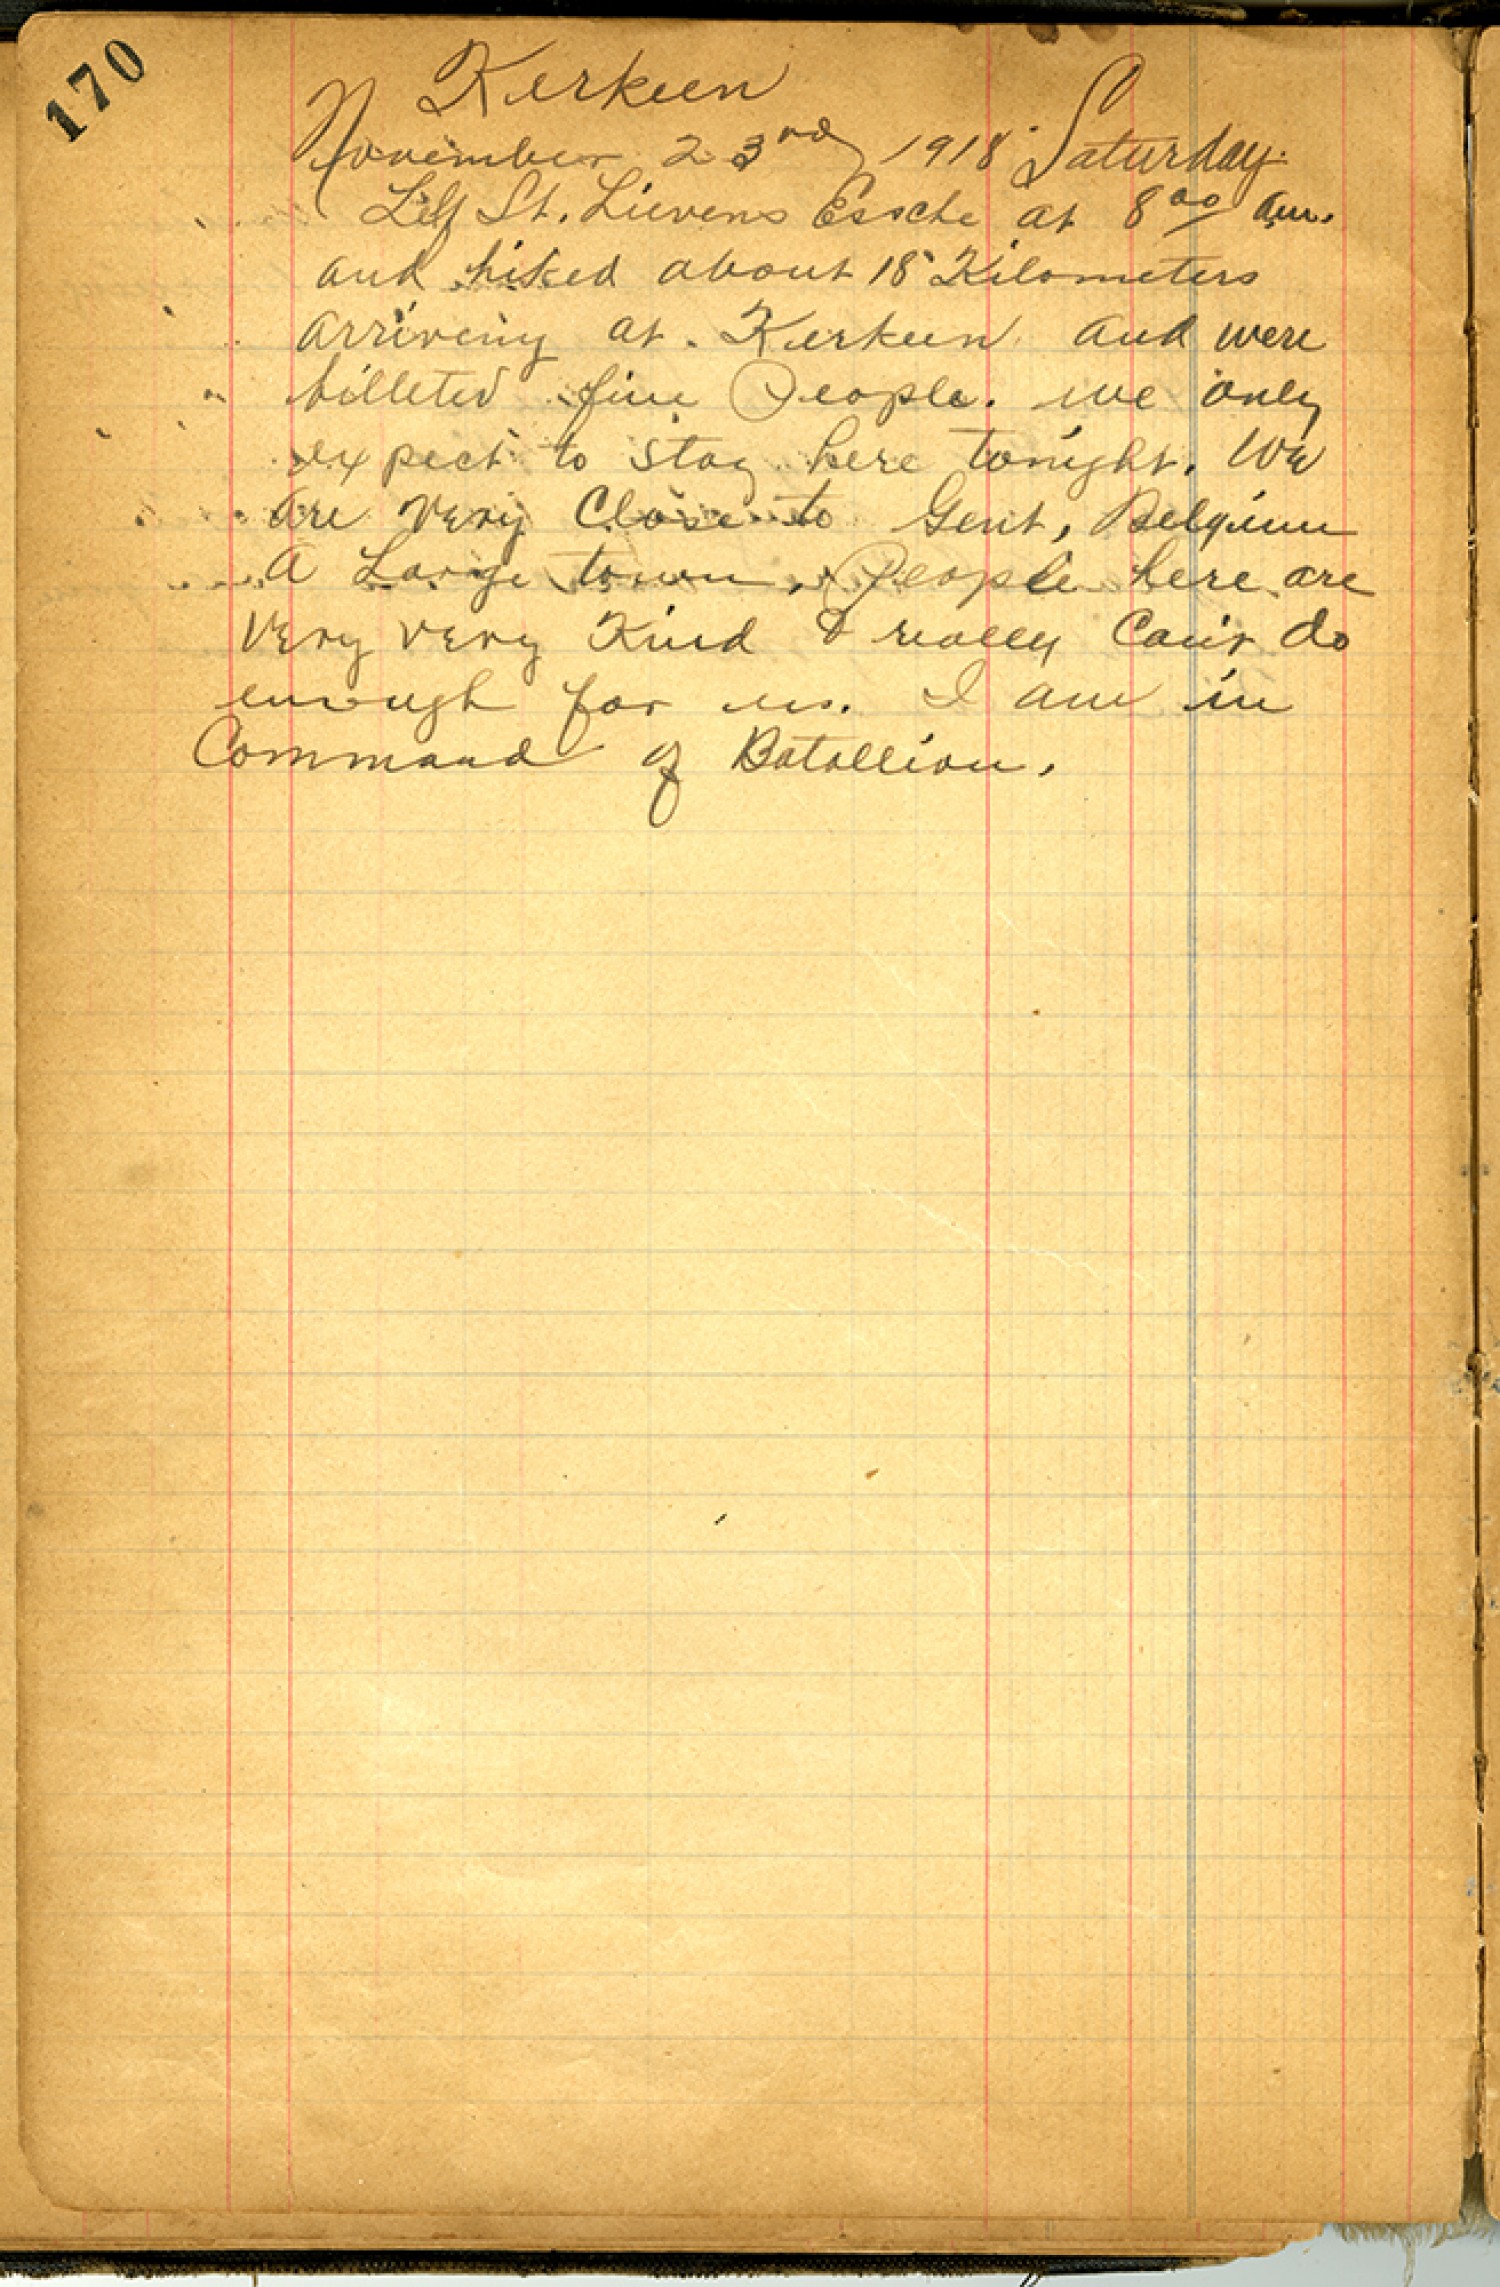 170
Kerkeen
November 23rd 1918 Saturday.
Left St. Lievens Essche at 8 00 am.
and hiked about 18 Kilometers
arriving at Kerkeen and were
billeted fine People. we only
expect to stay here tonight. We
are very Close to Gent, Belgium
A Large town, People here are
Very very Kind & really Can't do
enough for us. I am in
Command of Batallion.